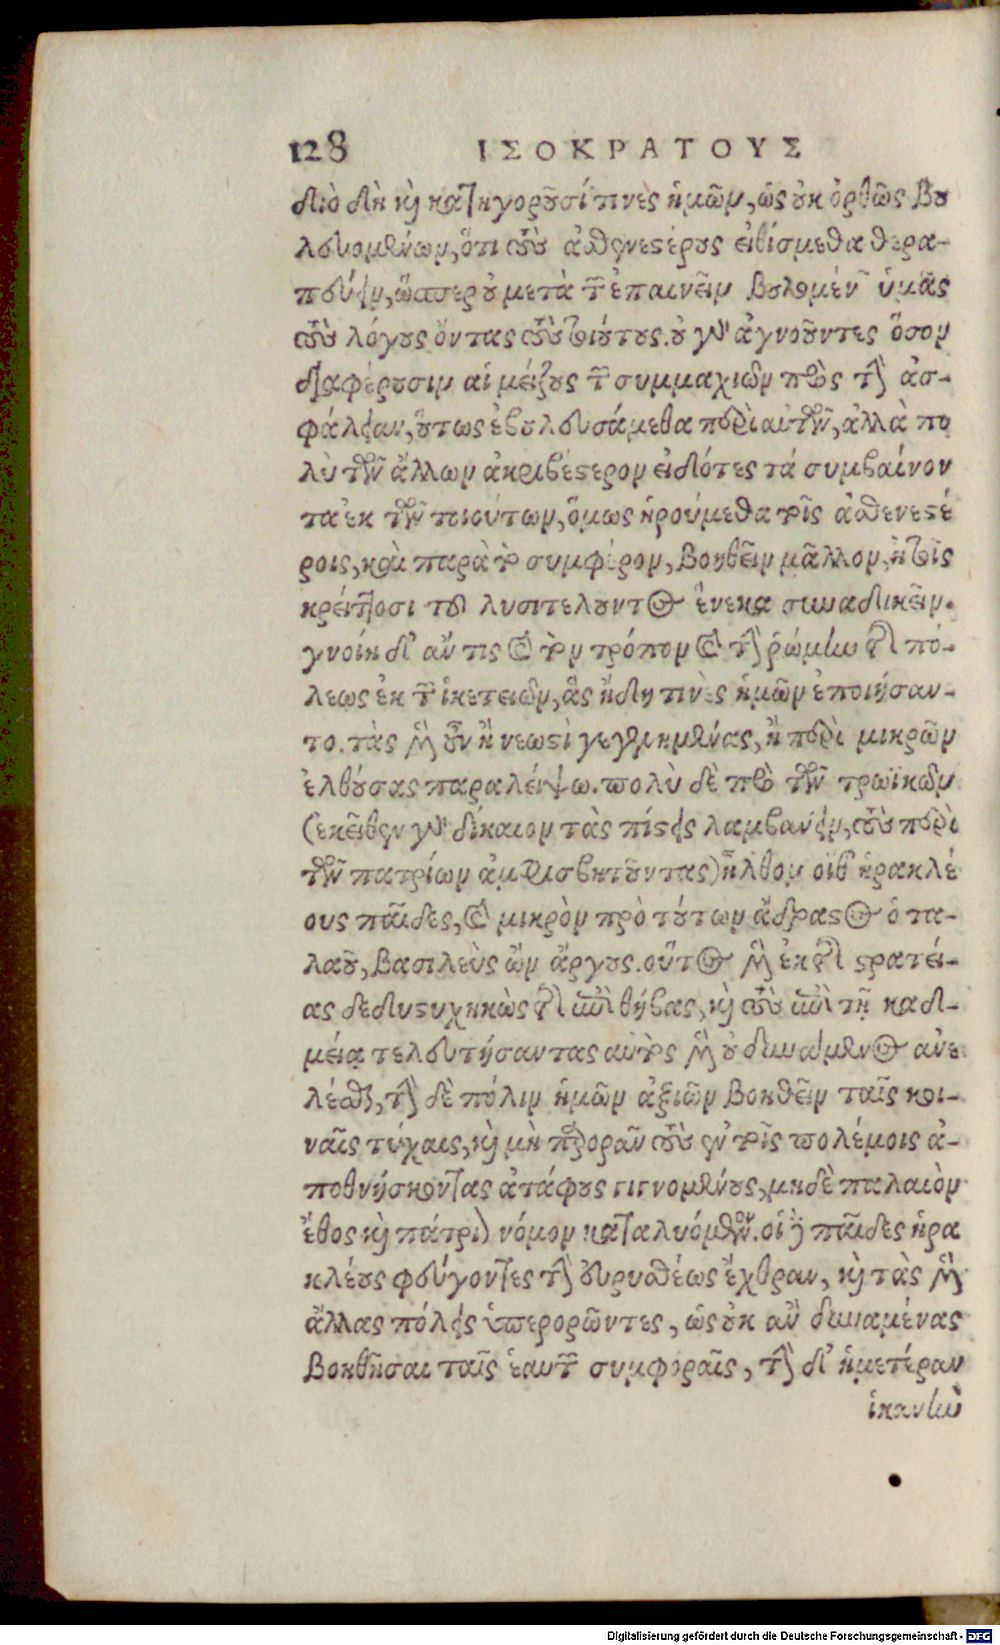 128 ΙΣΟΚΡΑΤΟΥΣ
διὸ δὴ καὶ κατηγοροῦσί τινὲς ἡμῶν, ὡς οὐκ ὀρθῶς βου
λευομένων, ὅτι τοὺς ἀσθενεστέρους εἰθίσμεθα θερα-
πεύειν, ὥσπερ οὐ μετὰ τῶν ἐπαινεῖν βουλομένων ὑμᾶς
τοὺς λόγους ὄντας τοὺς τοιούτους. οὐ γὰρ ἀγνοοῦντες ὅσον
διαφέρουσιν αἱ μείζους τῶν συμμαχιῶν πρὸς τὴν ἀσ-
φάλειαν, οὕτως ἐβουλευσάμεθα περὶ αὐτῶν, ἀλλὰ πο
λὺ τῶν ἄλλων ἀκριβέστερον εἰδότες τά συμβαίνον
τα ἐκ τῶν τοιούτων, ὅμως ἡρούμεθα τοῖς ἀσθενεστέ
ροις, καὶ παρὰ τὸ συμφέρον, βοηθεῖν μᾶλλον, ἢ τοῖς
κρείττοσι τοῦ λυσιτελοῦντος ἕνεκα συναδικεῖν.
γνοίη δ' ἄν τις καὶ τὸν τρόπον καὶ τὴν ῥώμην τῆς πό-
λεως ἐκ τῶν ἱκετειῶν, ἃς ἤδη τινὲς ἡμῶν ἐποιήσαν-
το. τὰς μὲν οὖν ἢ νεωστὶ γεγενημένας, ἢ περὶ μικρῶν
ἐλθούσας παραλείψω. πολὺ δὲ πρὸ τῶν τρωϊκῶν
(ἐκεῖθεν γὰρ δίκαιον τὰς πίστεις λαμβάνειν, τοὺς περὶ
τῶν πατρίων ἀμφισβητοῦντας) ἦλθον οἵθ' ἡρακλέ
ους παῖδες, καὶ μικρὸν πρὸ τούτων ἄδραστος ὁ τα-
λαοῦ, βασιλεὺς ὢν ἄργους. οὗτος μὲν ἐκ τῆς στρατεί-
ας δεδυστυχηκὼς τῆς ἐπὶ θήβας, καὶ τοὺς ἐπὶ τῇ καδ-
μείᾳ τελευτήσαντας αὐτὸς μὲν οὐ δυνάμενος ἀνε
λέσθαι, τὴν δὲ πόλιν ἡμῶν ἀξιῶν βοηθεῖν ταῖς κοι-
ναῖς τύχαις, καὶ μὴ περιορᾶν τοὺς ἐν τοῖς πολέμοις ἀ-
ποθνήσκοντας ἀτάφους γιγνομένους, μηδὲ παλαιὸν
ἔθος καὶ πάτριον νόμον καταλυόμενον. οἱ δὲ παῖδες ἡρα
κλέους φεύγοντες τὴν εὐρυσθέως ἔχθραν, καὶ τὰς μὲν
ἄλλας πόλεις ὑπερορῶντες, ὡς οὐκ ἂν δυναμένας
βοηθῆσαι ταῖς ἑαυτῶν συμφοραῖς, τὴν δ' ἡμετέραν
ἱκανὴν
Digitalisierung gefördert durch die Deutsche Forschungsgemeinschaft - DFG